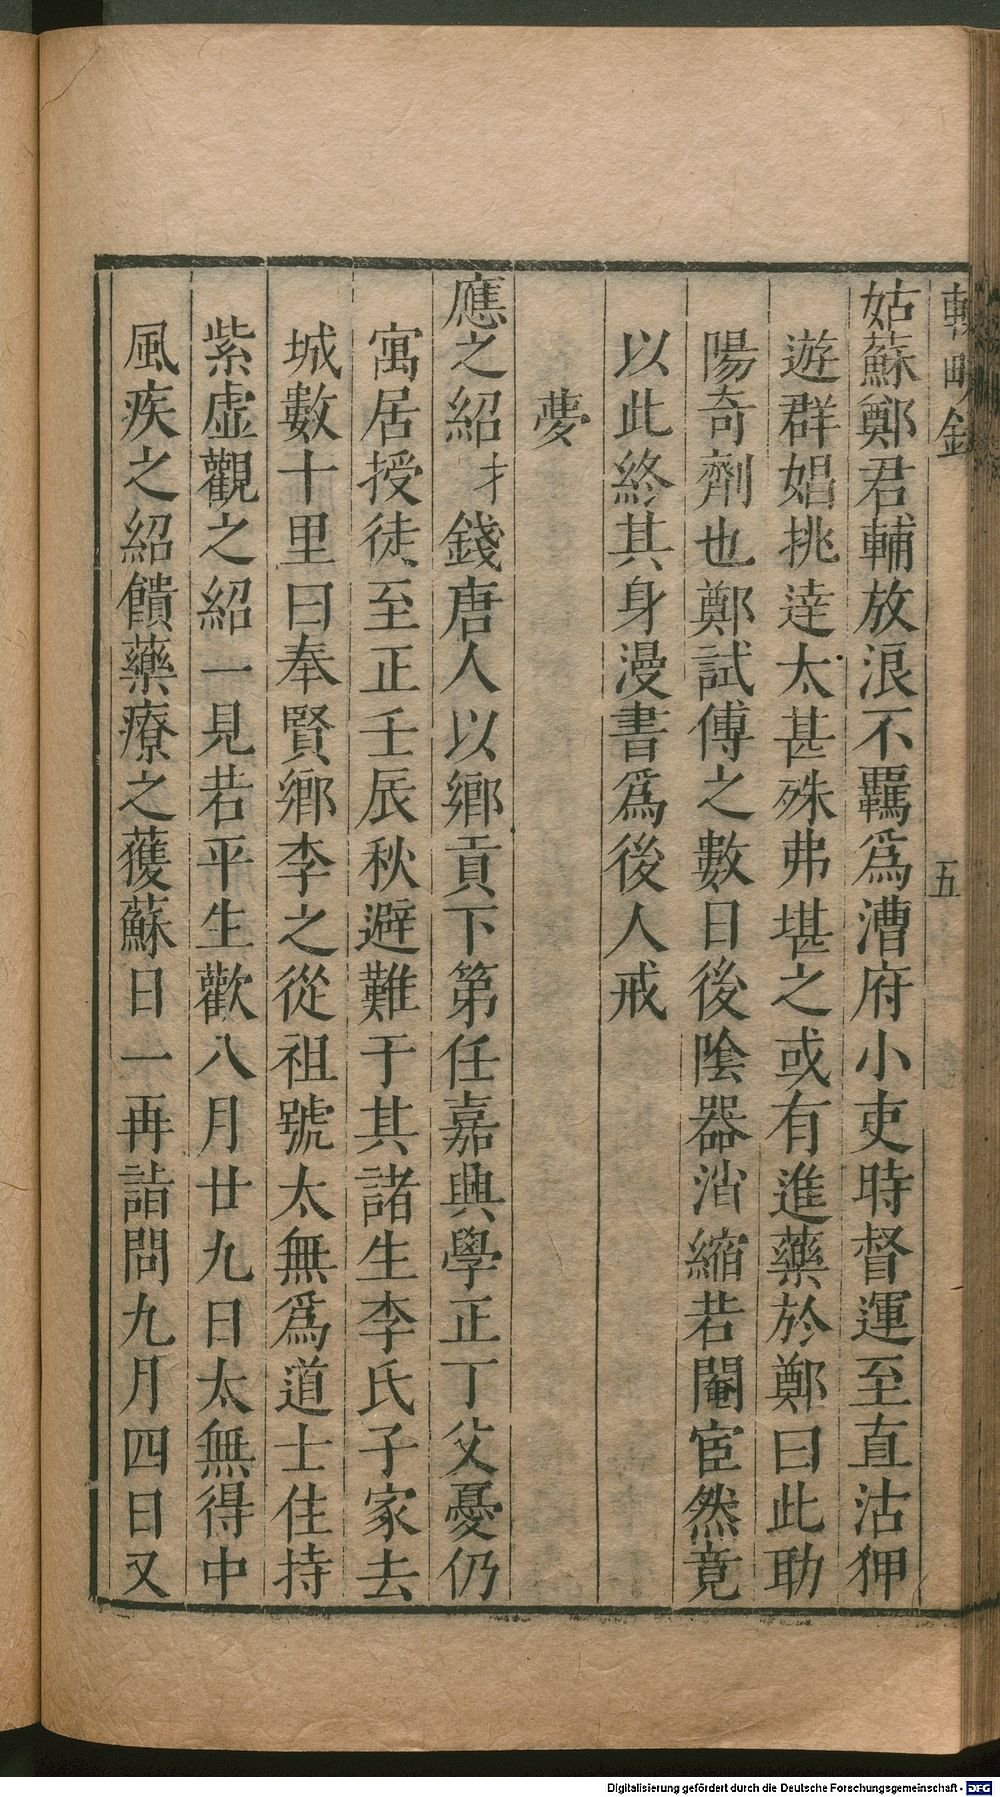 輟畊錄
五
姑蘇鄭君輔放浪不羈爲漕府小吏時督運至直沽狎
遊群娼挑達太甚殊弗堪之或有進藥於鄭曰此助
陽奇劑也鄭試傅之數日後陰器消縮若閹宦然竟
以此終其身漫書爲後人戒
夢
應之紹才錢唐人以鄉貢下第任嘉興學正丁父憂仍
寓居授徒至正壬辰秋避難于其諸生李氏子家去
城數十里曰奉賢鄉李之從祖號太無爲道士住持
紫虛觀之紹一見若平生歡八月廿九日太無得中
風疾之紹饋藥療之獲蘇日一再詣問九月四日又
Digitalisierung gefördert durch die Deutsche Forschungsgemeinschaft - DFG